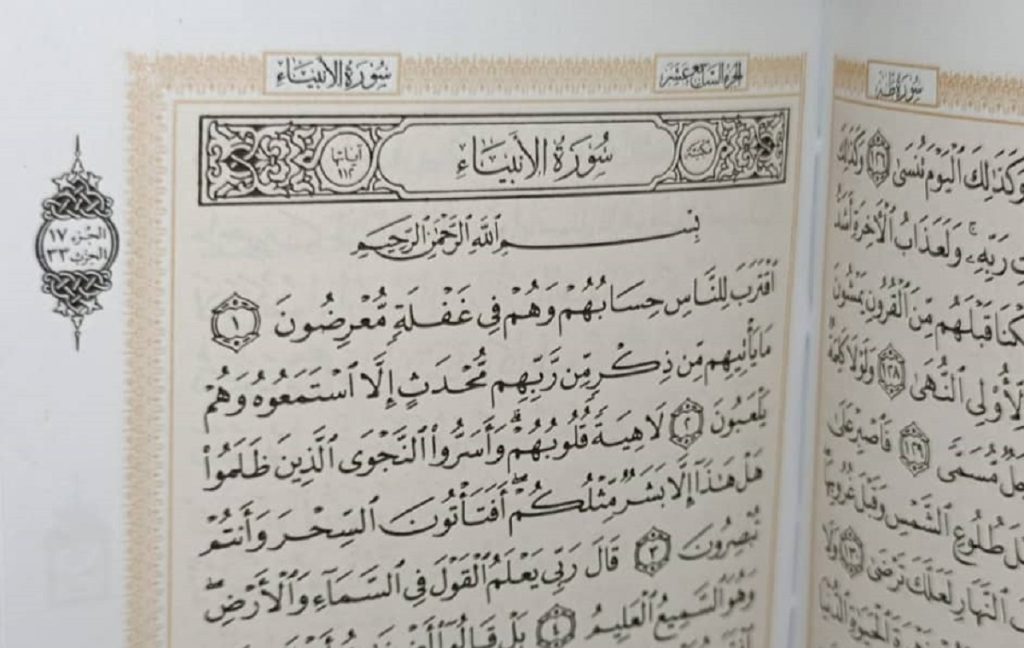 سُورَةُ طه
وَكَذَٰلِكَ ٱلْيَوْمَ تُنسَىٰ ١٢٦ وَكَذَٰلِكَ
رَبِّهِۦ ۚ وَلَعَذَابُ ٱلْأَخِرَةِ أَشَدُّ
قَبْلَهُم مِّنَ ٱلْقُرُونِ يَمْشُونَ
لِّأُو۟لِى ٱلنُّهَىٰ ١٢٨ وَلَوْلَا كَلِمَةٌ
مُّسَمًّى ١٢٩ فَٱصْبِرْ عَلَىٰ
طُلُوعِ ٱلشَّمْسِ وَقَبْلَ غُرُوبِهَا
ٱلنَّهَارِ لَعَلَّكَ تَرْضَىٰ ١٣٠ وَلَا
ٱلْحَيَوٰةِ ٱلدُّنْيَا
الجزء السابع عشر
سُورَةُ الأنبيَاء
مكية
سُورَةُ الأَنبِيَاءِ
آياتها ١١٢
الجزء ١٧
الحزب ٣٣
بِسْمِ ٱللَّهِ ٱلرَّحْمَٰنِ ٱلرَّحِيمِ
ٱقْتَرَبَ لِلنَّاسِ حِسَابُهُمْ وَهُمْ فِى غَفْلَةٍ مُّعْرِضُونَ ١
مَا يَأْتِيهِم مِّن ذِكْرٍ مِّن رَّبِّهِم مُّحْدَثٍ إِلَّا ٱسْتَمَعُوهُ وَهُمْ
يَلْعَبُونَ ٢ لَاهِيَةً قُلُوبُهُمْ ۗ وَأَسَرُّوا۟ ٱلنَّجْوَى ٱلَّذِينَ ظَلَمُوا۟
هَلْ هَٰذَآ إِلَّا بَشَرٌ مِّثْلُكُمْ ۖ أَفَتَأْتُونَ ٱلسِّحْرَ وَأَنتُمْ
تُبْصِرُونَ ٣ قَالَ رَبِّى يَعْلَمُ ٱلْقَوْلَ فِى ٱلسَّمَآءِ وَٱلْأَرْضِ ۖ
وَهُوَ ٱلسَّمِيعُ ٱلْعَلِيمُ ٤ بَلْ قَالُوٓا۟